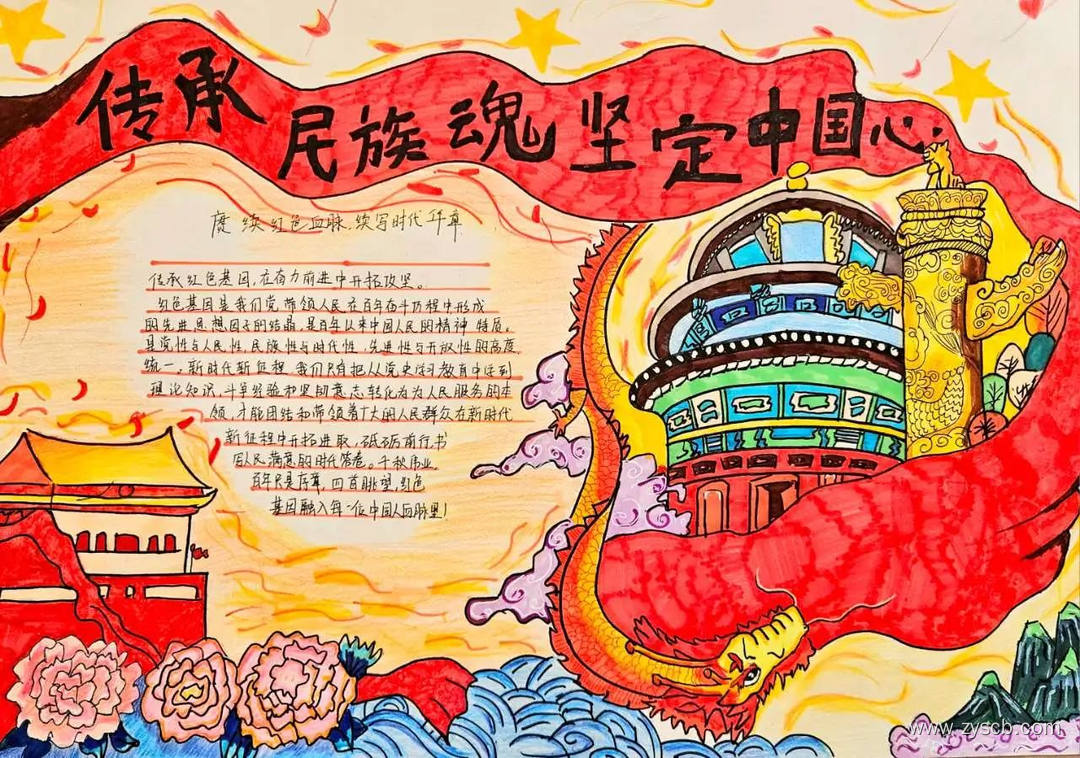 传承民族魂 坚定中国心
赓续红色血脉.续写时代华章
传承红色基因,在奋力前进中开拓攻坚。
红色基因是我们党带领人民在百年奋斗历程中形成
的先进思想因子的结晶,是百年以来中国人民的精神特质。
具党性与人民性,民族性与时代性,先进性与开放性的高度
统一,新时代新征程,我们只有把从党史学习教育中得到
理论知识,斗争经验和坚韧意志转化为为人民服务的本
领,才能团结和带领着广大的人民群众在新时代
新征程中开拓进取,砥砺前行书
写人民满意的时代答卷。千秋伟业,
百年只是序章,回首眺望,红色
基因融入每一位中国人血脉里!
www.zyscb.com